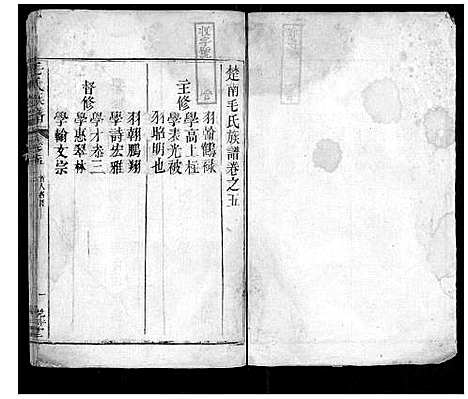 楚南毛氏族譜卷之五
主修
羽翰鶴祿
學高上桂
學表光被
羽駱明也
督修
羽朝鵬翔
學詩宏雅
學才泰三
學惠翠林
學翰文宗
毛氏族譜